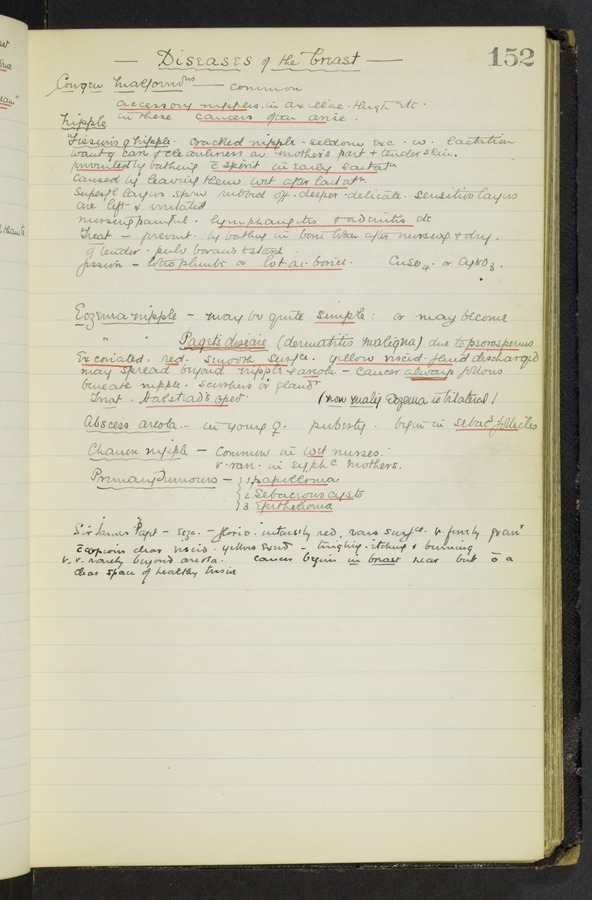 — Diseases of the Breast — 152
Congen Malformns — common
accessory nipples in axillae. thigh etc.
in these cancers often arise.
Nipple
Fissuring of nipple. Cracked nipple. seldom exc. w. lactation
want of care of cleanliness on mother's part + tender skin.
prevented by bathing c̄ spirit in early lactatn
caused by leaving them wet after lactatn
Superfl layers epm rubbed off. deeper delicate. sensitive layers
are left & irritated
nursing painful. lymphangitis + adenitis etc
Treat — prevent. by bathing in after nursing & dry.
if tender. pulv boracis & starch
fissure — lotio plumbi or lot ac. boric. CuSO4. or AgNO3.
Eczema nipple — may be quite simple: or may become
" " Paget's disease (dermatitis maligna) due to psorosperms
Excoriated. red. smooth surface. yellow viscid fluid discharged
may spread beyond nipple & areola — cancer always follows
beneath nipple. Scirrhus or glandr
Treat. Halstead's oper. (non malig Eczema is bilateral)
Abscess areola — in young ♀. puberty. begin in sebacs follicles
Chancre nipple — common in wet nurses.
v. rare. in syphc mothers.
Primary Tumours — 1. papilloma
2. Sebaceous cysts
3 Epithelioma
Sir James Paget — Ecze. — florid. intensely red, raw surfce. v finely gran
c̄ copious clear viscid. yellow exud — tingling. itching & burning
v. v. rarely beyond areola. cancer begins in breast near but c̄ a
clear space of healthy tissue